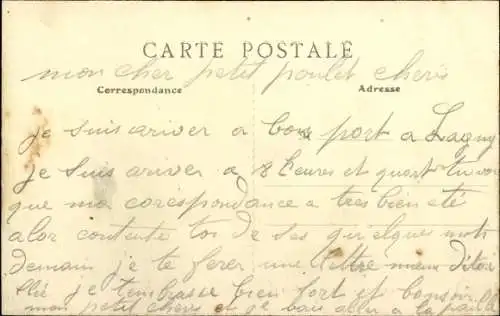 CARTE POSTALE
mon cher petit poulet cheris
Correspondance
Adresse
je suis ariver a bon port a Lagny
je suis ariver a 8 heures et quart tu voi
que ma corespondance a tres bien été
alor contente toi de ses quelques mots
demain je te ferer une lettre mieux
je tembrasse bien fort et bonsoir
mon petit cheris et je a la